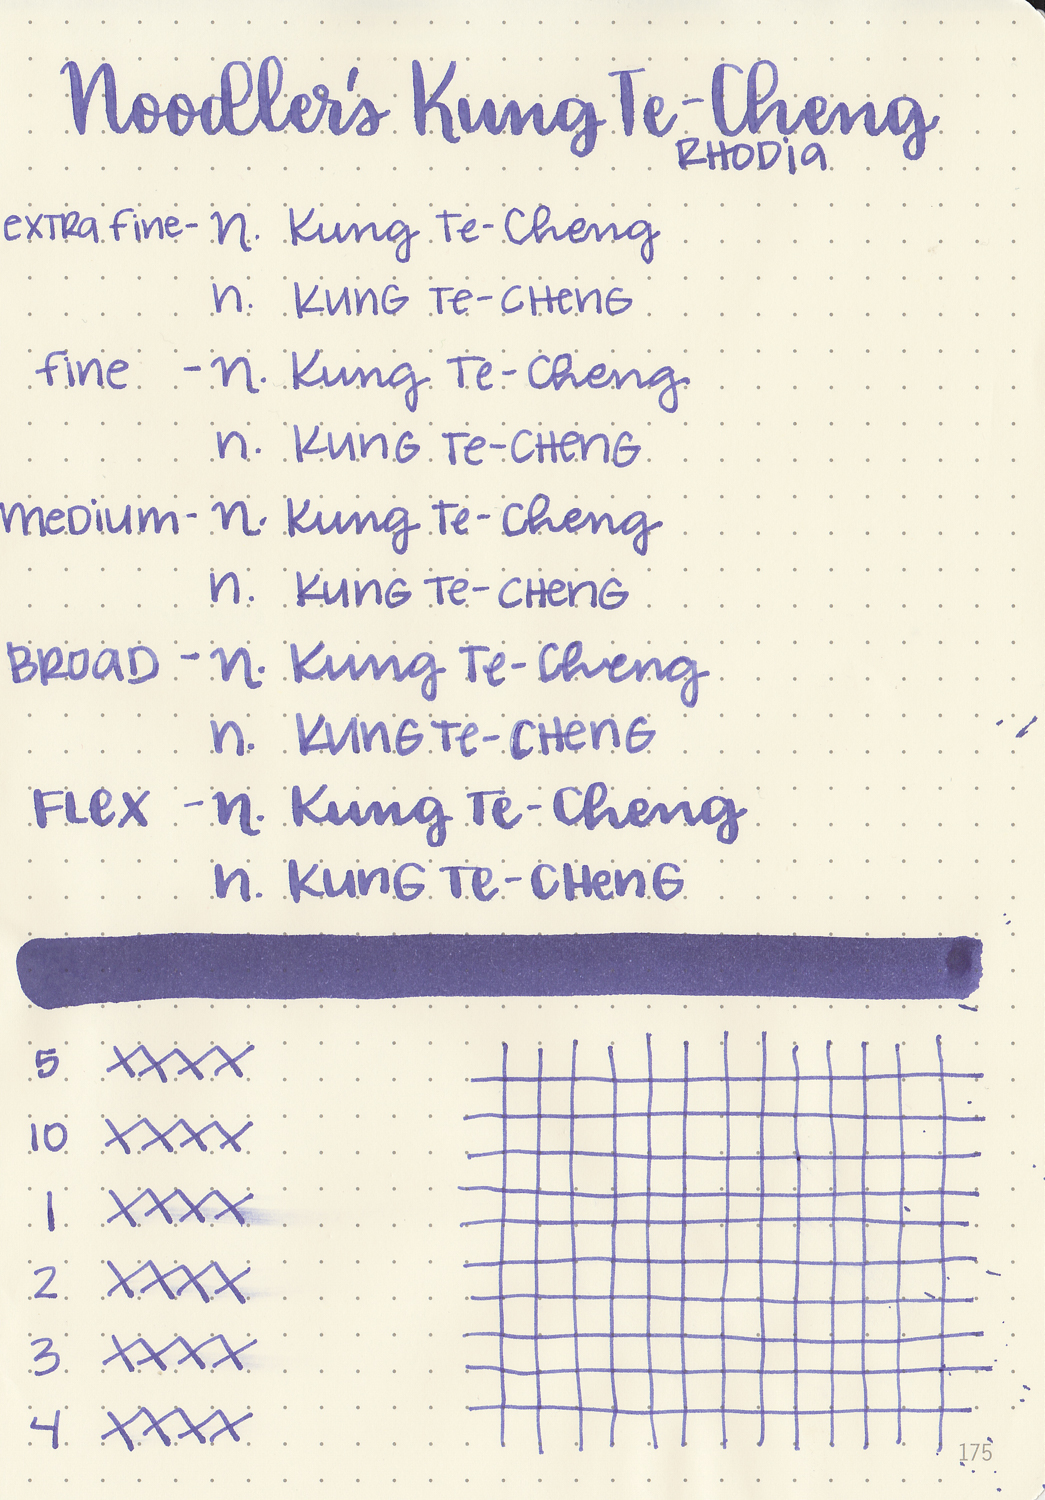 Noodler's Kung Te-Cheng
RHODIA
extra fine - N. Kung Te-Cheng
N. KUNG Te-CHENG
fine - N. Kung Te-Cheng
N. KUNG Te-CHENG
MEDIUM - N. Kung Te-Cheng
N. KUNG Te-CHENG
BROAD - N. Kung Te-Cheng
N. KUNG Te-CHENG
FLEX - N. Kung Te-Cheng
N. KUNG Te-CHENG
5 XXXX
10 XXXX
1 XXXX
2 XXXX
3 XXXX
4 XXXX
175